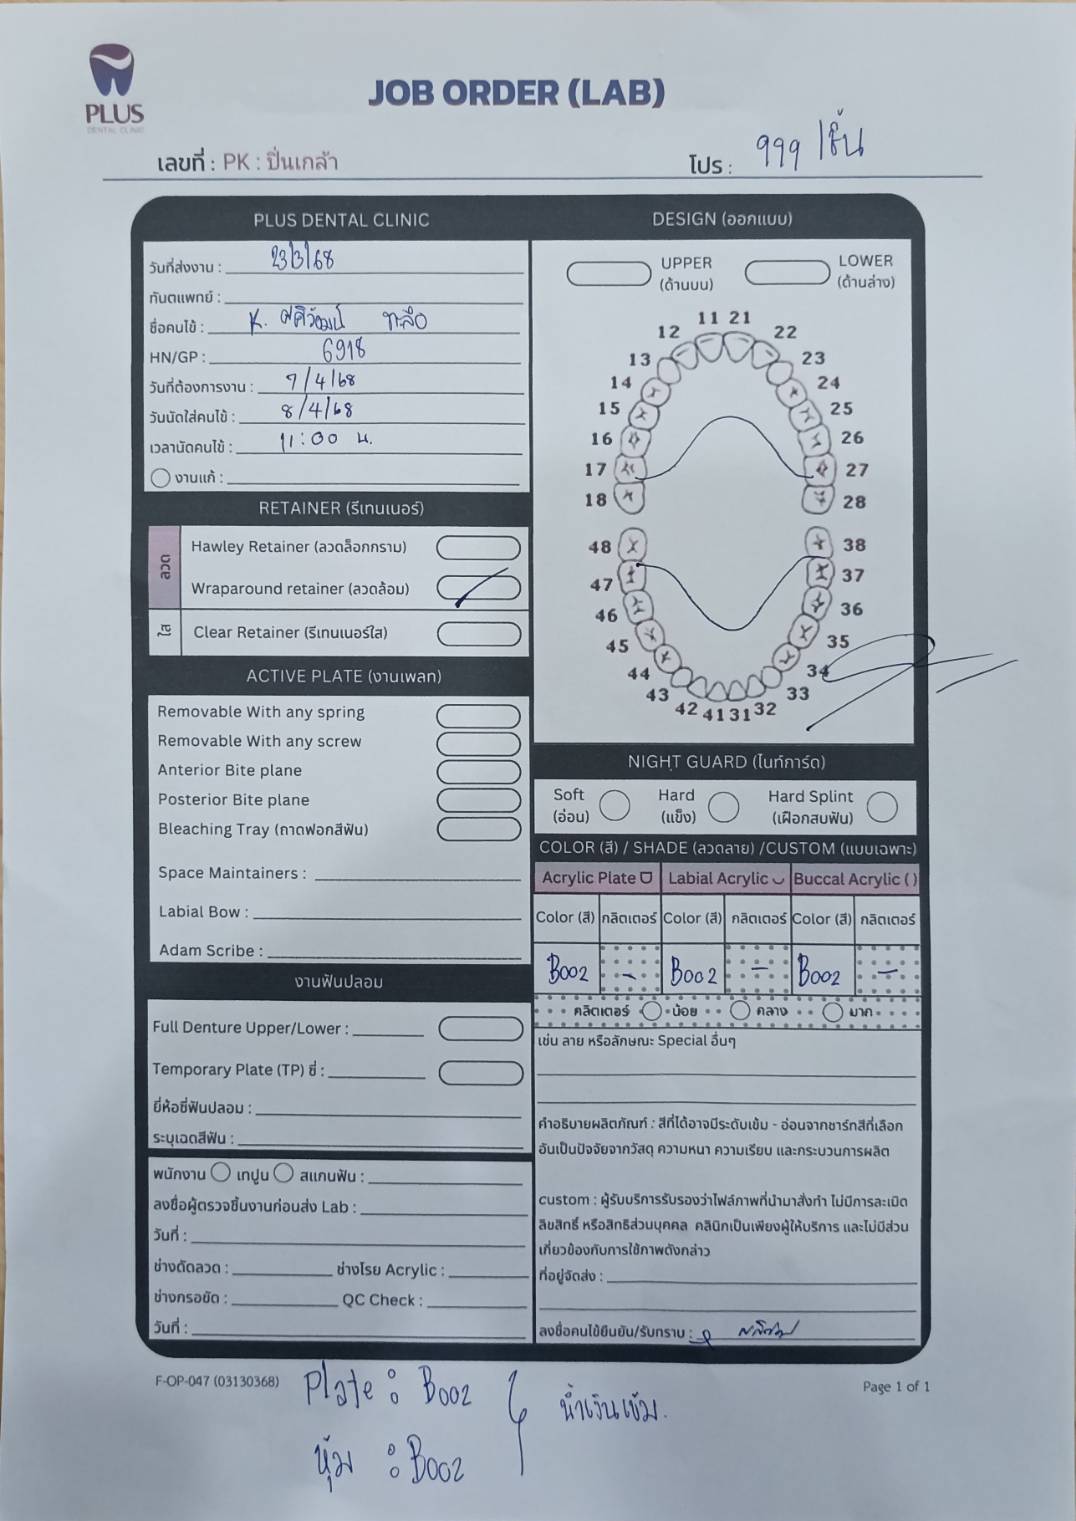 PLUS
DENTAL CLINIC
JOB ORDER (LAB)
เลขที่ : PK : ปิ่นเกล้า
โปร : 999 /ชิ้น
PLUS DENTAL CLINIC
วันที่ส่งงาน : 23/3/68
ทันตแพทย์ :
ชื่อคนไข้ : K.
HN/GP : 6918
วันที่ต้องการงาน : 7/4/68
วันนัดใส่คนไข้ : 8/4/68
เวลานัดคนไข้ : 11:00 น.
งานแก้ :
RETAINER (รีเทนเนอร์)
ลวด
Hawley Retainer (ลวดล็อกกราม)
Wraparound retainer (ลวดล้อม)
ใส
Clear Retainer (รีเทนเนอร์ใส)
ACTIVE PLATE (งานเพลท)
Removable With any spring
Removable With any screw
Anterior Bite plane
Posterior Bite plane
Bleaching Tray (ถาดฟอกสีฟัน)
Space Maintainers :
Labial Bow :
Adam Scribe :
งานฟันปลอม
Full Denture Upper/Lower :
Temporary Plate (TP) ซี่ :
ยี่ห้อซี่ฟันปลอม :
ระบุเฉดสีฟัน :
พนักงาน เทปูน สแกนฟัน :
ลงชื่อผู้ตรวจชิ้นงานก่อนส่ง Lab :
วันที่ :
ช่างดัดลวด : ช่างโรย Acrylic :
ช่างกรอขัด : QC Check :
วันที่ :
DESIGN (ออกแบบ)
UPPER
(ด้านบน)
LOWER
(ด้านล่าง)
11 21
12 22
13 23
14 24
15 25
16 26
17 27
18 28
48 38
47 37
46 36
45 35
44 34
43 33
42 41 31 32
NIGHT GUARD (ไนท์การ์ด)
Soft
(อ่อน)
Hard
(แข็ง)
Hard Splint
(เฝือกสบฟัน)
COLOR (สี) / SHADE (ลวดลาย) /CUSTOM (แบบเฉพาะ)
Acrylic Plate Labial Acrylic Buccal Acrylic ( )
Color (สี) กลิตเตอร์ Color (สี) กลิตเตอร์ Color (สี) กลิตเตอร์
B002 - B002 - B002 -
กลิตเตอร์ น้อย กลาง มาก
เช่น ลาย หรือลักษณะ Special อื่นๆ
คำอธิบายผลิตภัณฑ์ : สีที่ได้อาจมีระดับเข้ม - อ่อนจากชาร์ทสีที่เลือก
อันเป็นปัจจัยจากวัสดุ ความหนา ความเรียบ และกระบวนการผลิต
custom : ผู้รับบริการรับรองว่าไฟล์ภาพที่นำมาสั่งทำ ไม่มีการละเมิด
ลิขสิทธิ์ หรือสิทธิส่วนบุคคล คลินิกเป็นเพียงผู้ให้บริการ และไม่มีส่วน
เกี่ยวข้องกับการใช้ภาพดังกล่าว
ที่อยู่จัดส่ง :
ลงชื่อคนไข้ยืนยัน/รับทราบ :
F-OP-047 (03130368)
Page 1 of 1
Plate : B002
หุ้ม : B002
น้ำเงินเข้ม.